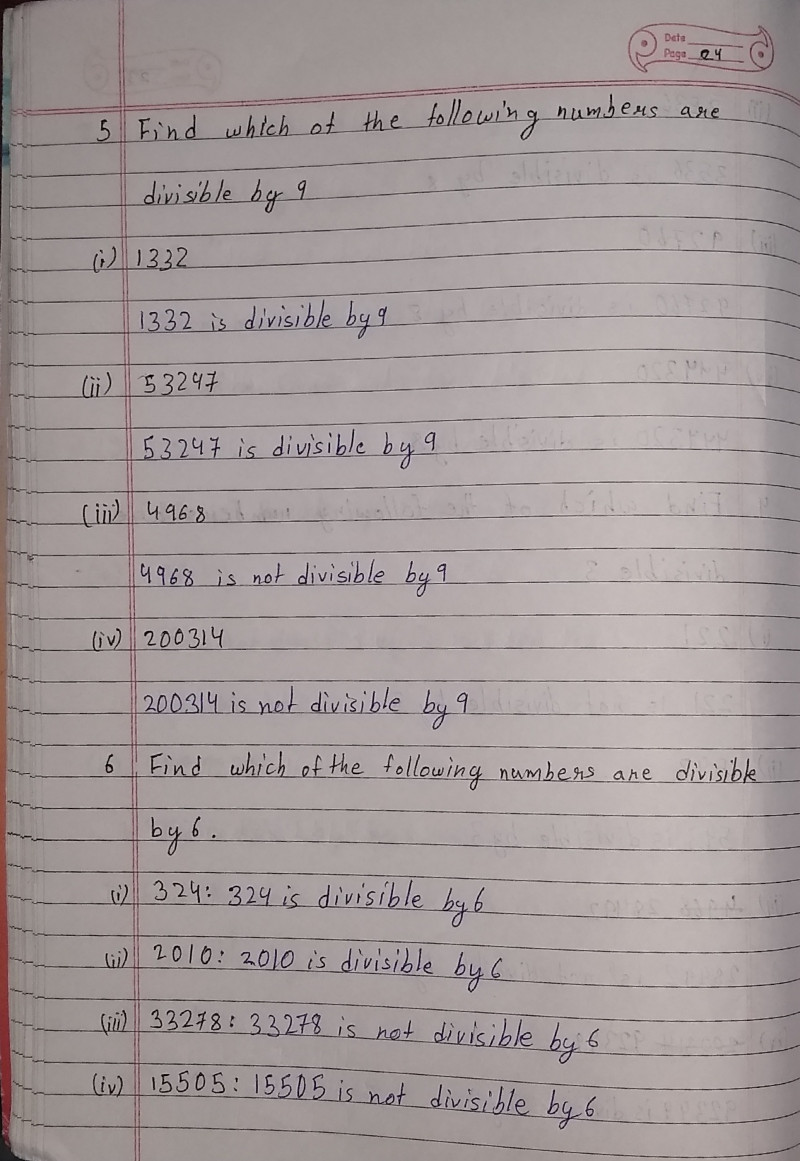 Date
Page 04
5 Find which of the following numbers are
divisible by 9
(i) 1332
1332 is divisible by 9
(ii) 53247
53247 is divisible by 9
(iii) 4968
4968 is not divisible by 9
(iv) 200314
200314 is not divisible by 9
6 Find which of the following numbers are divisible
by 6.
(i) 324: 324 is divisible by 6
(ii) 2010: 2010 is divisible by 6
(iii) 33278: 33278 is not divisible by 6
(iv) 15505: 15505 is not divisible by 6